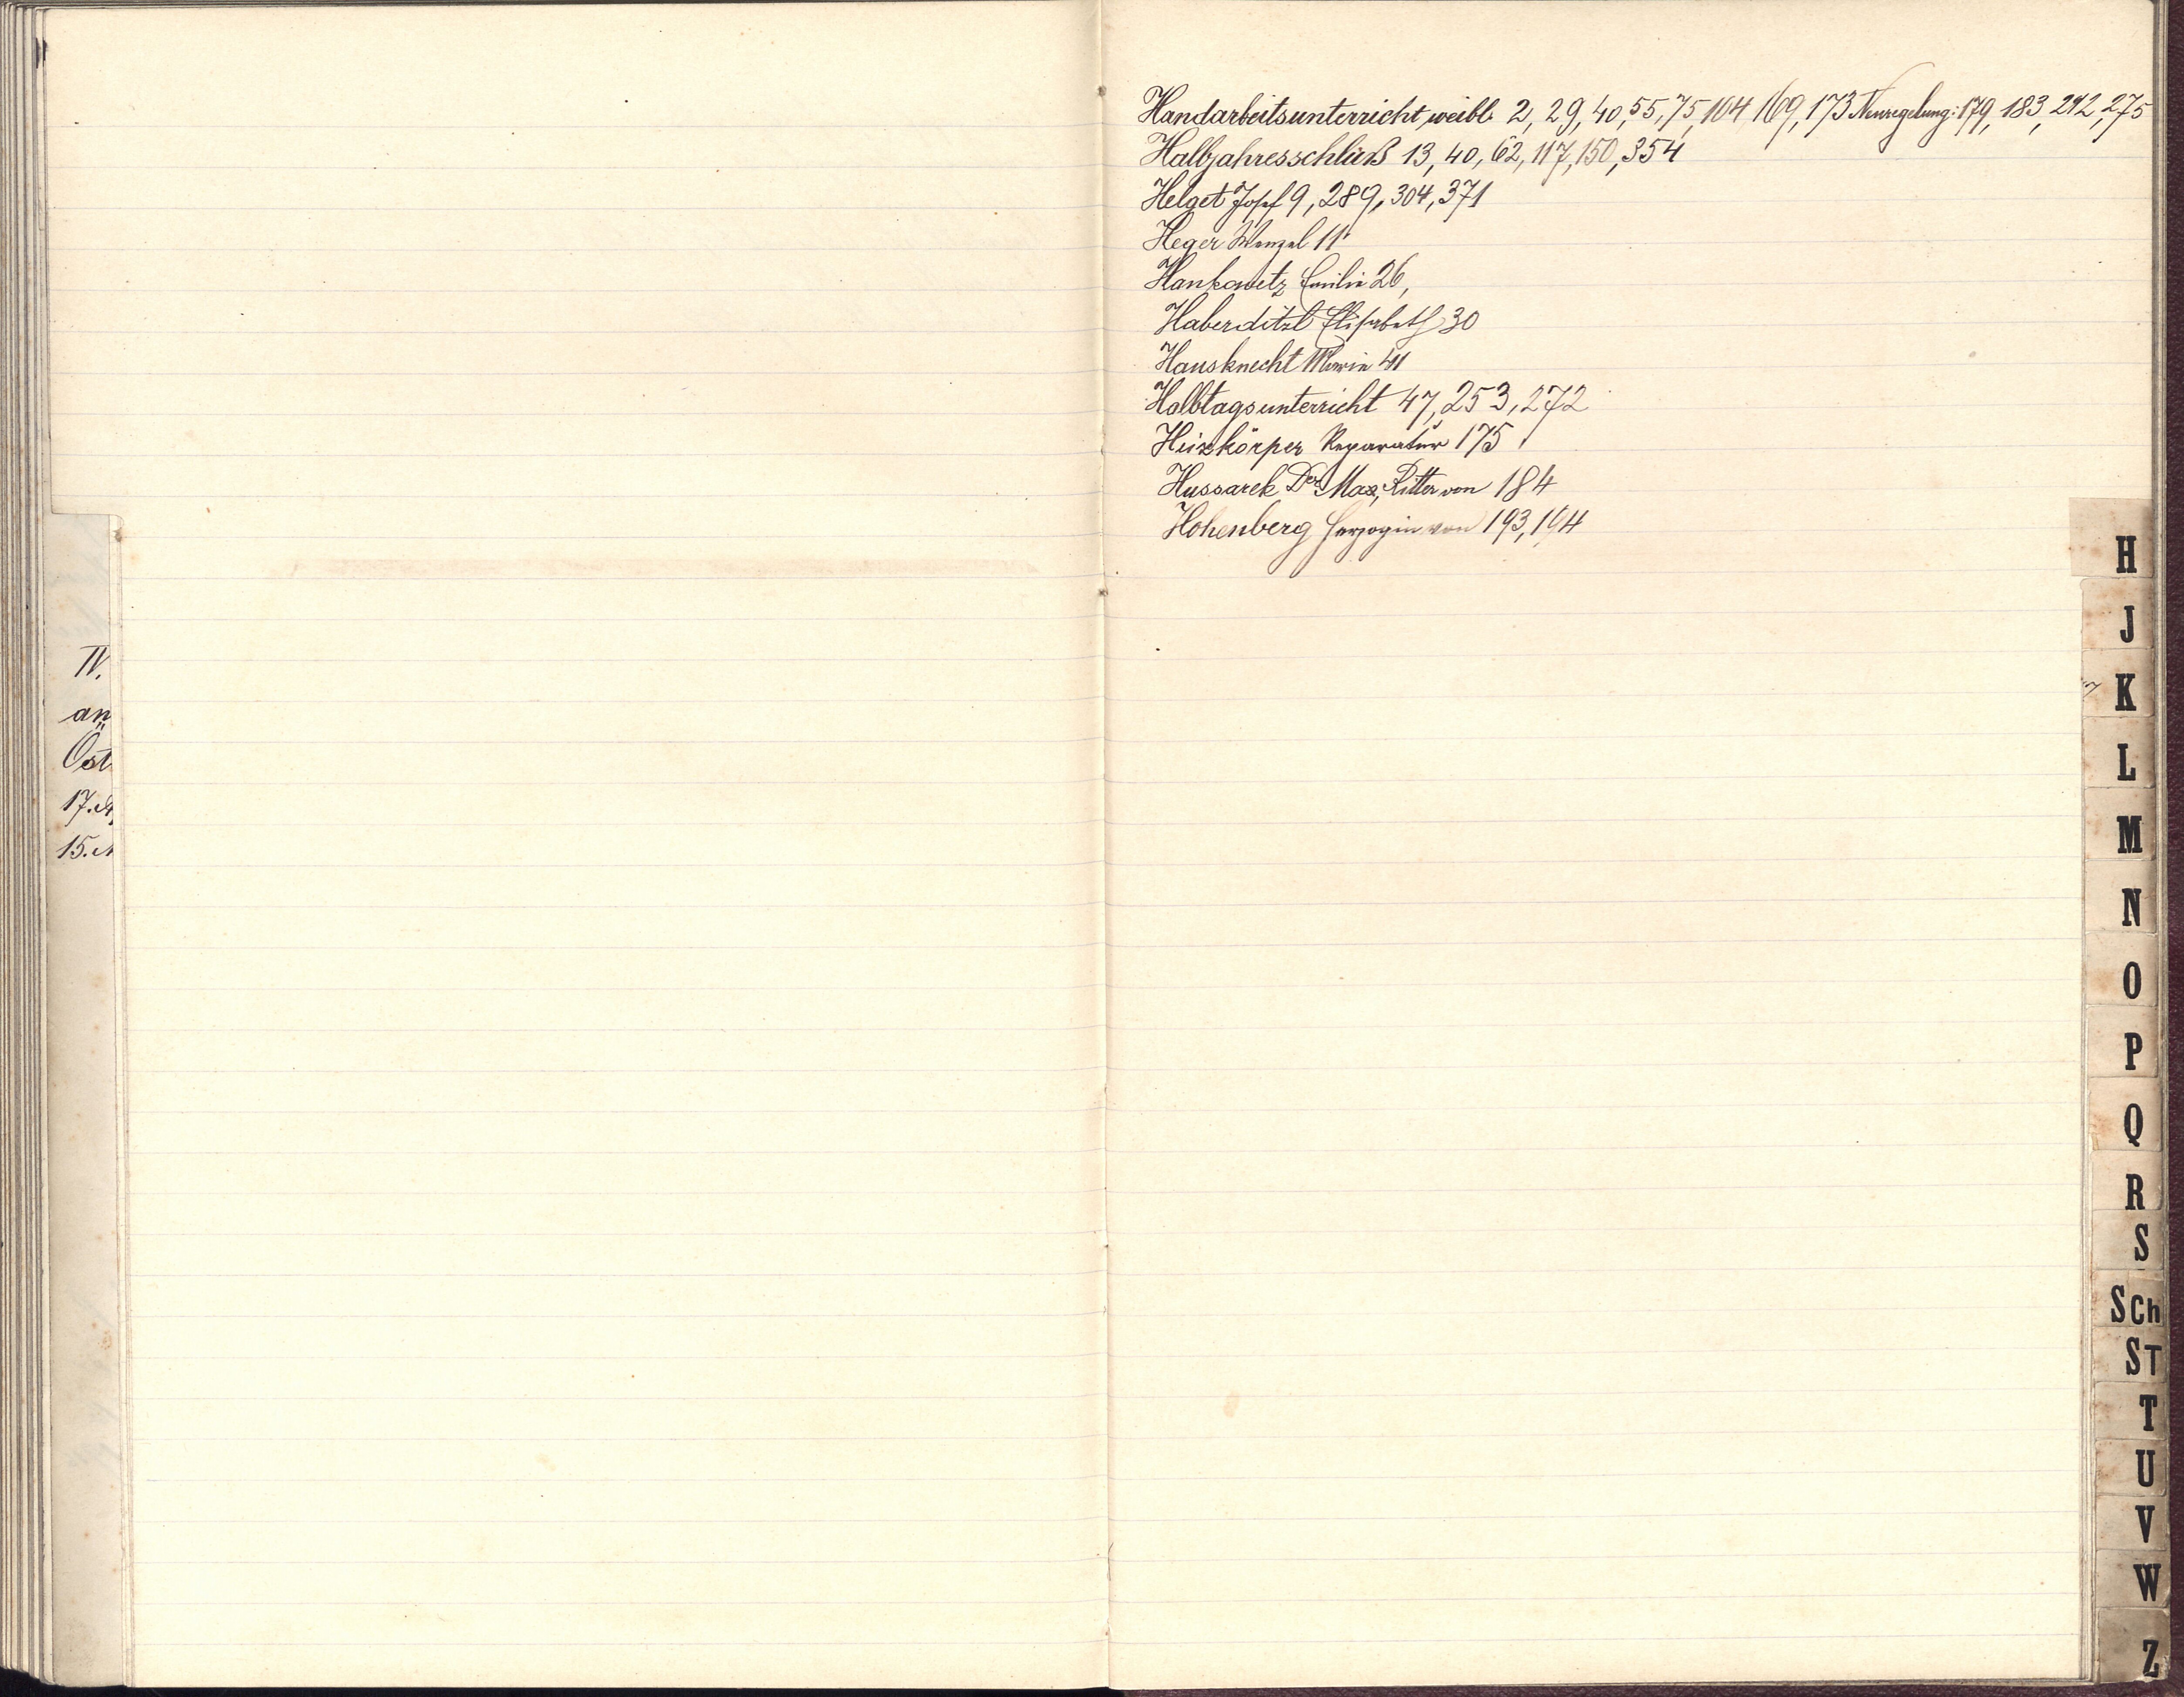 Handarbeitsunterricht, weibl. 2, 29, 40, 55, 75, 104, 169, 173 Neuregelung: 179, 183, 242, 275
Halbjahresschluß 13, 40, 62, 117, 150, 354
Helget Josef 9, 289, 304, 371
Heger Wenzel 11
Hankowetz Emilie 26,
Haberditzl Elisabeth 30
Hausknecht Marie 41
Halbtagsunterricht 47, 253, 272
Heizkörper Reparatur 175
Hussarek Dr. Max, Ritter von 184
Hohenberg Herzogin von 193, 194
IV.
an
Öst
17. A
15. M
H
J
K
L
M
N
O
P
Q
R
S
SCh
ST
T
U
V
W
Z